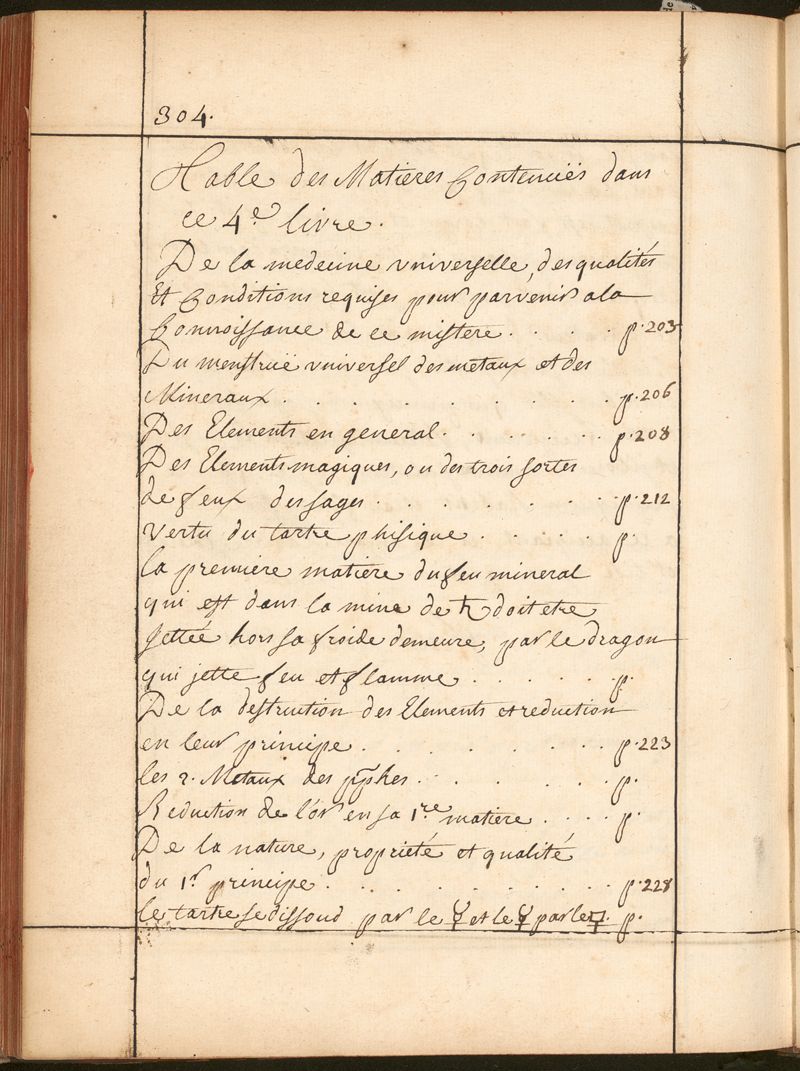 304.
Table des Matieres Contenuës dans
ce 4.e livre.
De la medecine vniverselle, des qualités
Et Conditions requises pour parvenir a la
Connoissance de ce mistere. . . . . p. 203
Du menstruë vniversel des metaux et des
Mineraux. . . . . . . . . . p. 206
Des Elements en general. . . . . . p. 208
Des Elements magiques, ou des trois sortes
de feux des sages. . . . . . . . p. 212
vertu du tartre phisique. . . . . p.
la premiere matiere du feu mineral
qui est dans la mine de ♄ doit etre
Jettée hors sa froide demeure, par le dragon
qui jette feu et flamme. . . . . . p.
De la destruction des Elements et reduction
en leur principe. . . . . . . . p. 223
les 2. Metaux des pphes. . . . . . p.
Reduction de l'or en sa 1.re matiere. . . . p.
De la nature, proprieté et qualité
du 1.r principe. . . . . . . . . p. 228
le tartre se dissoud par le ☿ et le ☿ par le p.